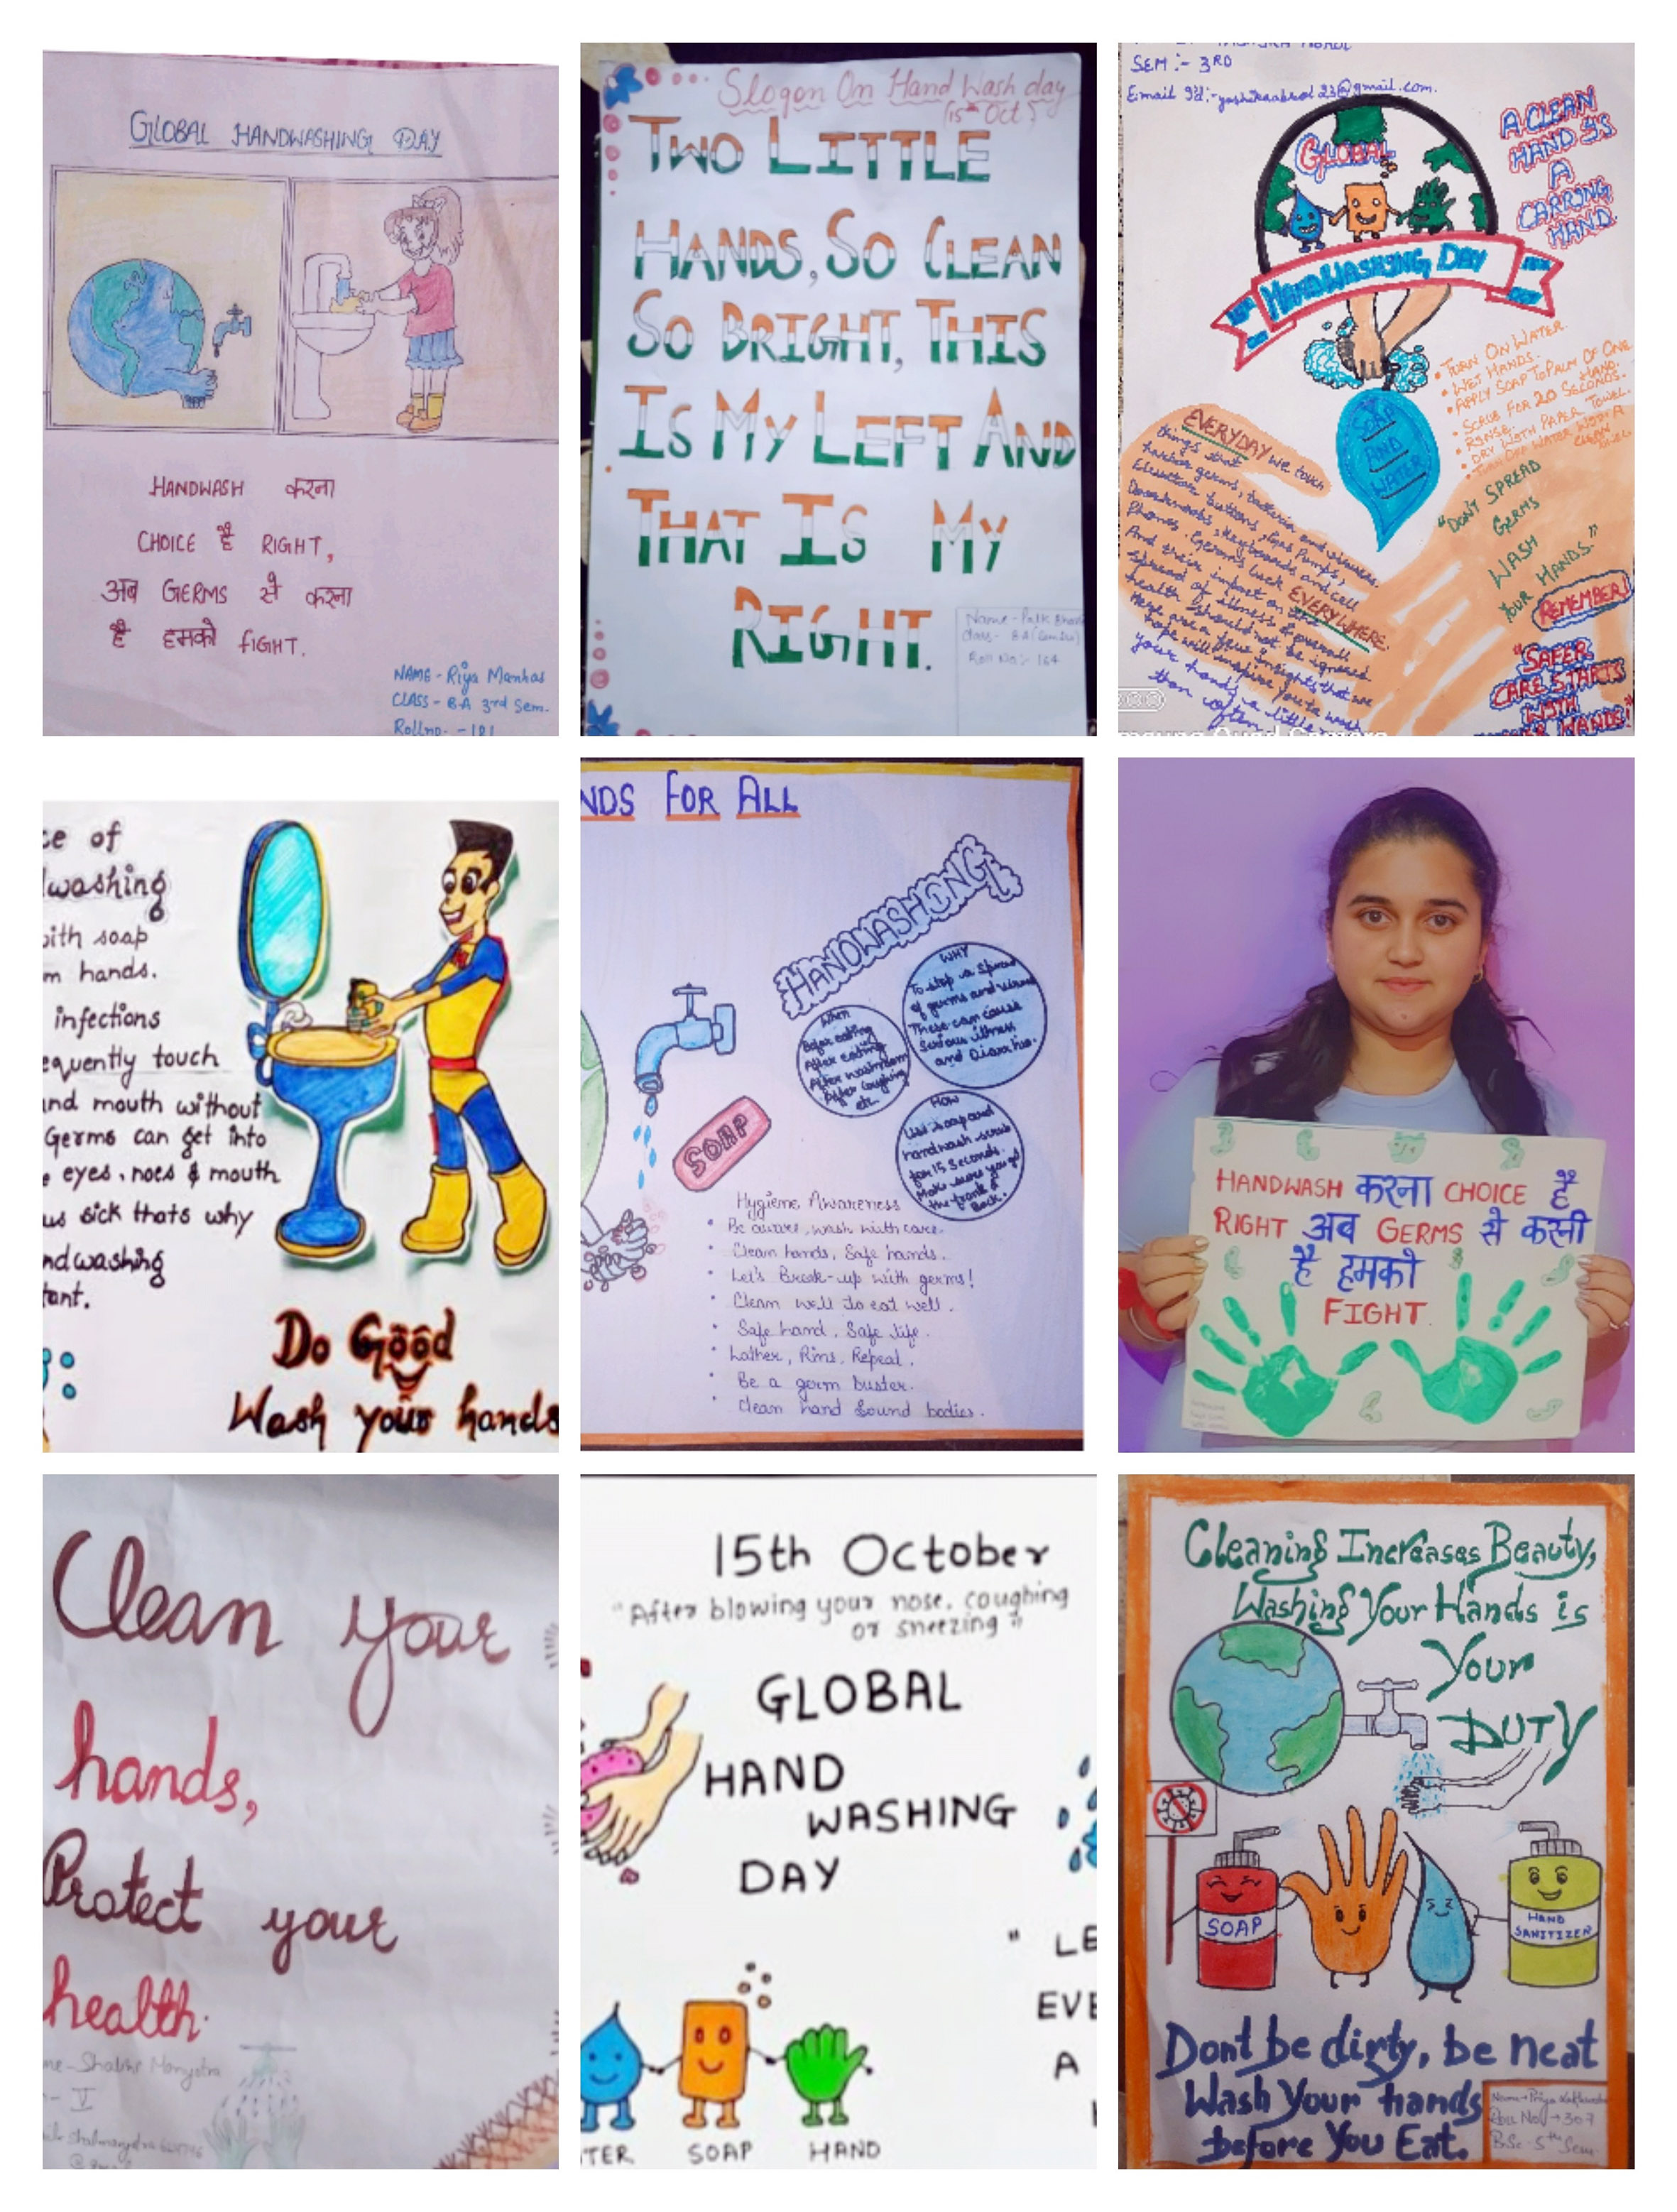 GLOBAL HANDWASHING DAY
HANDWASH करना
CHOICE है RIGHT,
अब GERMS से करना
है हमको FIGHT.
NAME - Riya Manhas
CLASS - BA 3rd Sem.
Rollno. - 181
Slogon On Hand Wash day
(15th Oct)
TWO LITTLE
HANDS, SO CLEAN
SO BRIGHT, THIS
IS MY LEFT AND
THAT IS MY
RIGHT.
Name - Palk
Class - BA
Roll No:- 164
SEM :- 3RD
Email I'd:-
A CLEAN
HAND IS
A
CARRING
HAND.
GLOBAL
HANDWASHING DAY
SOAP
AND
WATER
• TURN ON WATER.
• WET HANDS.
• APPLY SOAP TO PALM OF ONE HAND.
• SCRUB FOR 20 SECONDS.
• RINSE.
• DRY WITH PAPER TOWEL.
EVERYDAY we touch
things that
harbor germs, bacteria and viruses.
Elevator buttons, Gas Pumps,
Doorknobs, Keyboards and cell
Phones. Germs luck EVERYWHERE.
And their impact on the
spread of illness & overall
health should not be ignored.
Here are a few insights that we
hope will inspire you to wash
your hands a little
than often
"DON'T SPREAD
GERMS
WASH
YOUR HANDS."
REMEMBER!
"SAFER
CARE STARTS
WITH
HANDS!"
ce of
washing
with soap
m hands.
infections
equently touch
and mouth without
Germs can get into
e eyes, noes & mouth
us sick thats why
ndwashing
tant.
Do Good
Wash your hands
NDS FOR ALL
HANDWASHONG
WHY
To stop a Spread
of germs and viruses
These can cause
Serious illness
and Diarrhea.
When
Before eating
After eating
After washroom
After Coughing
etc.
How
Use soap and
handwash scrub
for 15 Seconds.
Make sure you get
the front &
Back.
SOAP
Hygiene Awareness
• Be aware, wash with care.
• Clean hands, Safe hands.
• Let's Break-up with germs!
• Clean well to eat well.
• Safe hand, Safe life.
• Lather, Rins, Repeat.
• Be a germ buster.
• Clean hand Sound bodies.
HANDWASH करना CHOICE है
RIGHT अब GERMS से करनी
है हमको
FIGHT.
Clean your
hands,
Protect your
health.
15th October
"After blowing your nose, coughing
or sneezing"
GLOBAL
HAND
WASHING
DAY
" LE
EVE
A
TER SOAP HAND
Cleaning Increases Beauty,
Washing Your Hands is
Your
DUTY
SOAP
HAND
SANITIZER
Dont be dirty, be neat
Wash Your hands
before You Eat.
Name → Priya
Roll No → 307
BSc. 5th Sem.